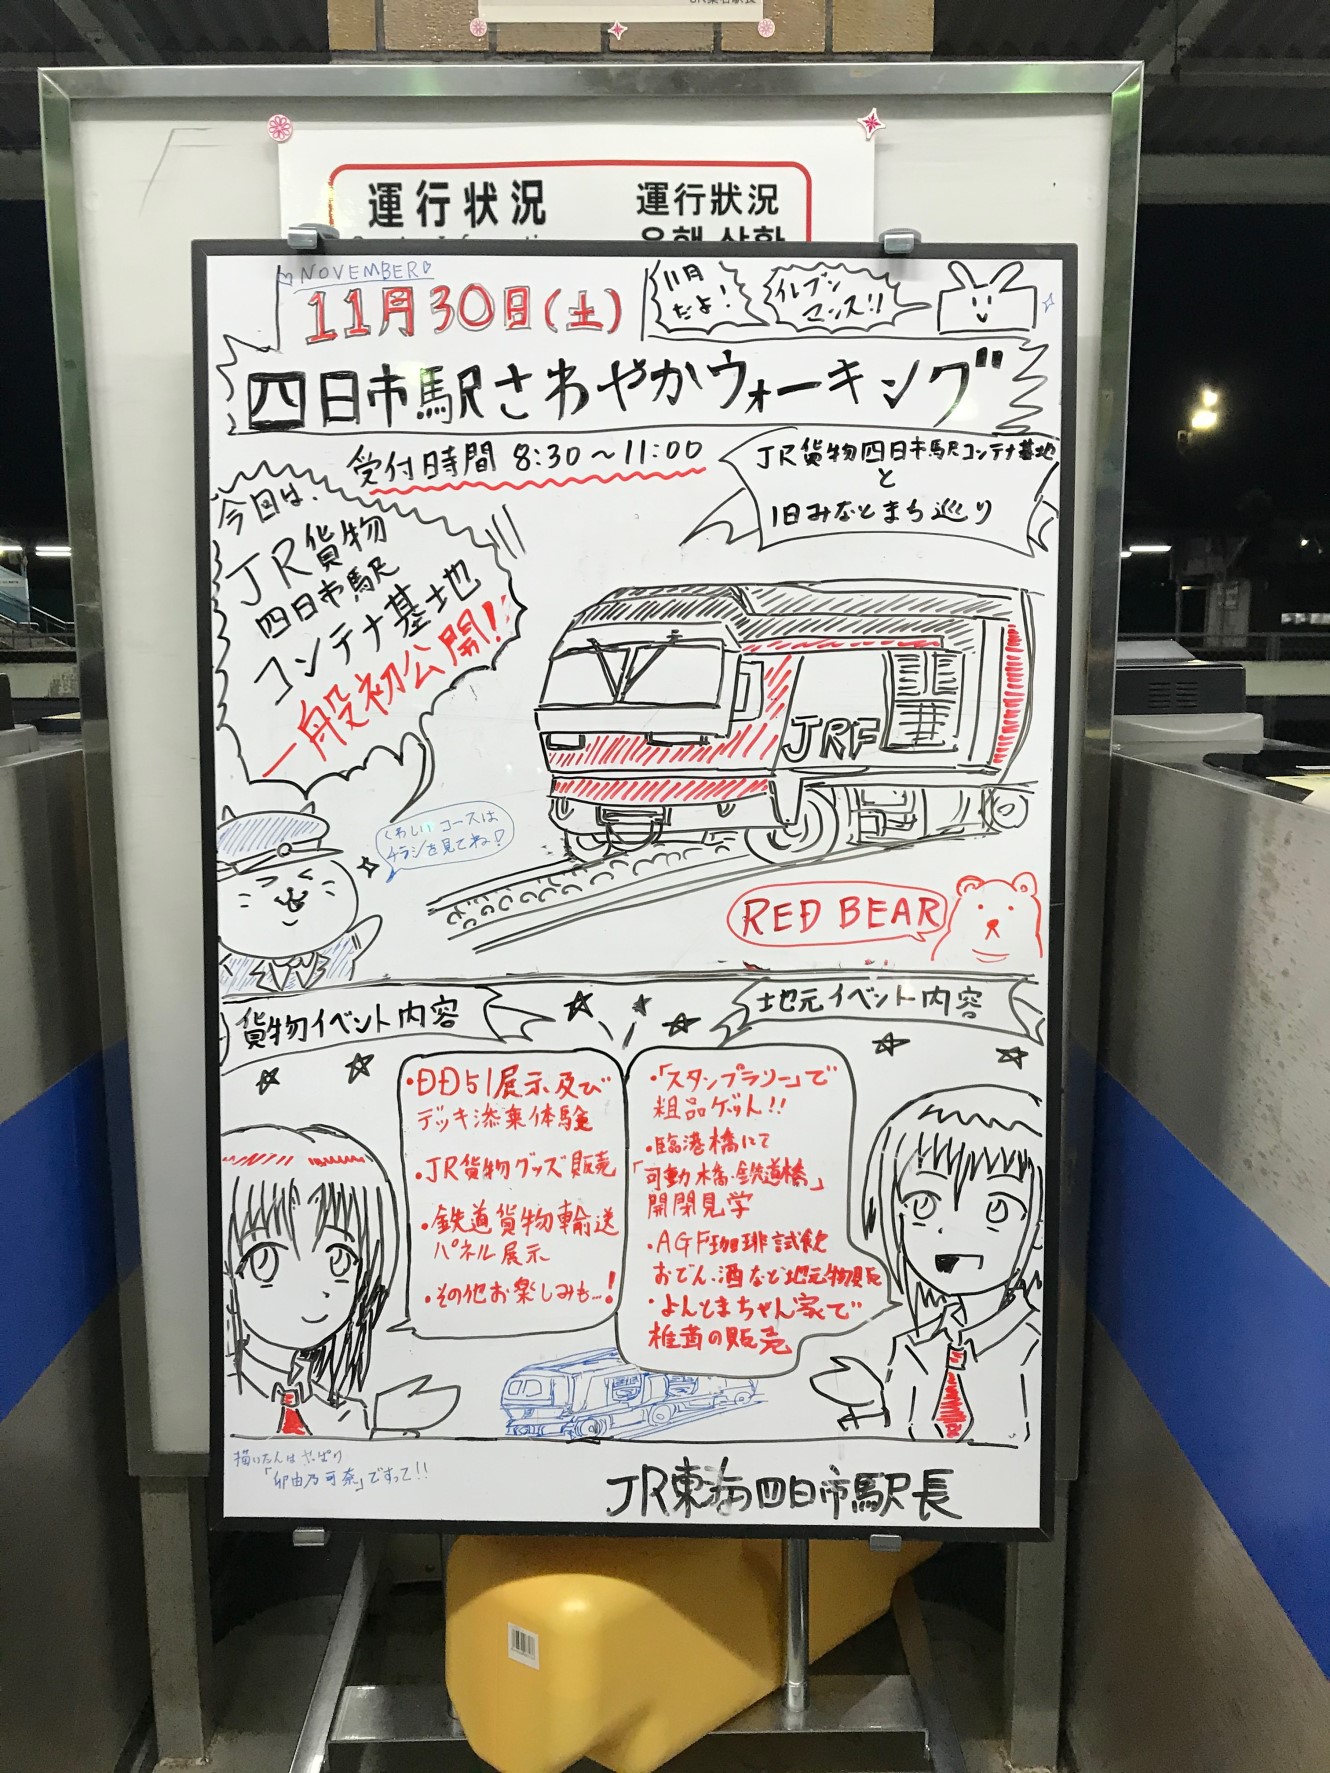 運行状況
運行狀況
NOVEMBER
11月30日(土)
11月
だよ!
イレブン
マンス!!
四日市駅さわやかウォーキング
受付時間 8:30~11:00
JR貨物四日市駅コンテナ基地
と
旧みなとまち巡り
今回は、
JR貨物
四日市駅
コンテナ基地
一般初公開!
JRF
くわしいコースは
チラシを見てね!
RED BEAR
貨物イベント内容
・DD51展示及び
デッキ添乗体験
・JR貨物グッズ販売
・鉄道貨物輸送
パネル展示
・その他お楽しみも…!
地元イベント内容
・「スタンプラリー」で
粗品ゲット!!
・臨港橋にて
「可動橋・鉄道橋」
開閉見学
・AGF珈琲試飲
おでん、酒など地元物販
・よんとまちゃん家で
椎茸の販売
描いたんはやっぱり
「卯由乃可奈」ですって!!
JR東海四日市駅長